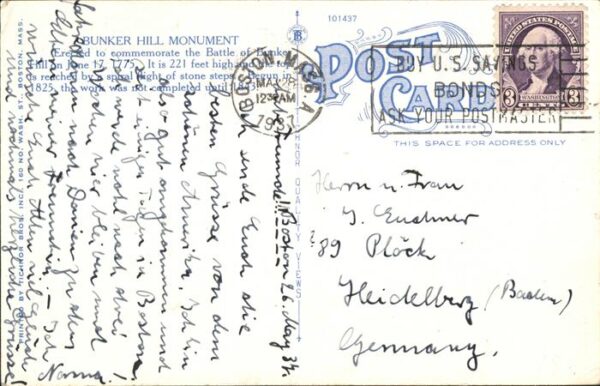 101437
BUNKER HILL MONUMENT
Erected to commemorate the Battle of Bunker
Hill in June 17, 1775. It is 221 feet high and the top
is reached by a spiral flight of stone steps. Begun in
1825, the work was not completed until 1843.
POST
CARD
THIS SPACE FOR ADDRESS ONLY
BOSTON, MASS.
MAY 27
12 AM
1937
BUY U.S. SAVINGS
BONDS
ASK YOUR POSTMASTER
UNITED STATES POSTAGE
3 WASHINGTON 3
PRINTED BY TICHNOR BROS., INC., 160 NO. WASH. ST. BOSTON, MASS.
QUALITY VIEWS
Boston 26. May 37.
Freunde!!
Ich sende Euch die
besten Grüsse von dem
Amerika. Ich bin
also gut angekommen und
seit einigen Tagen in Boston.
werde wohl noch drei
Wochen hier bleiben und
dann nach
meiner Freundin. – Ich
und nochmals herzliche Grüsse!
Norma.
Herrn u. Frau
J.
89 Plöck
Heidelberg (Baden)
Germany.